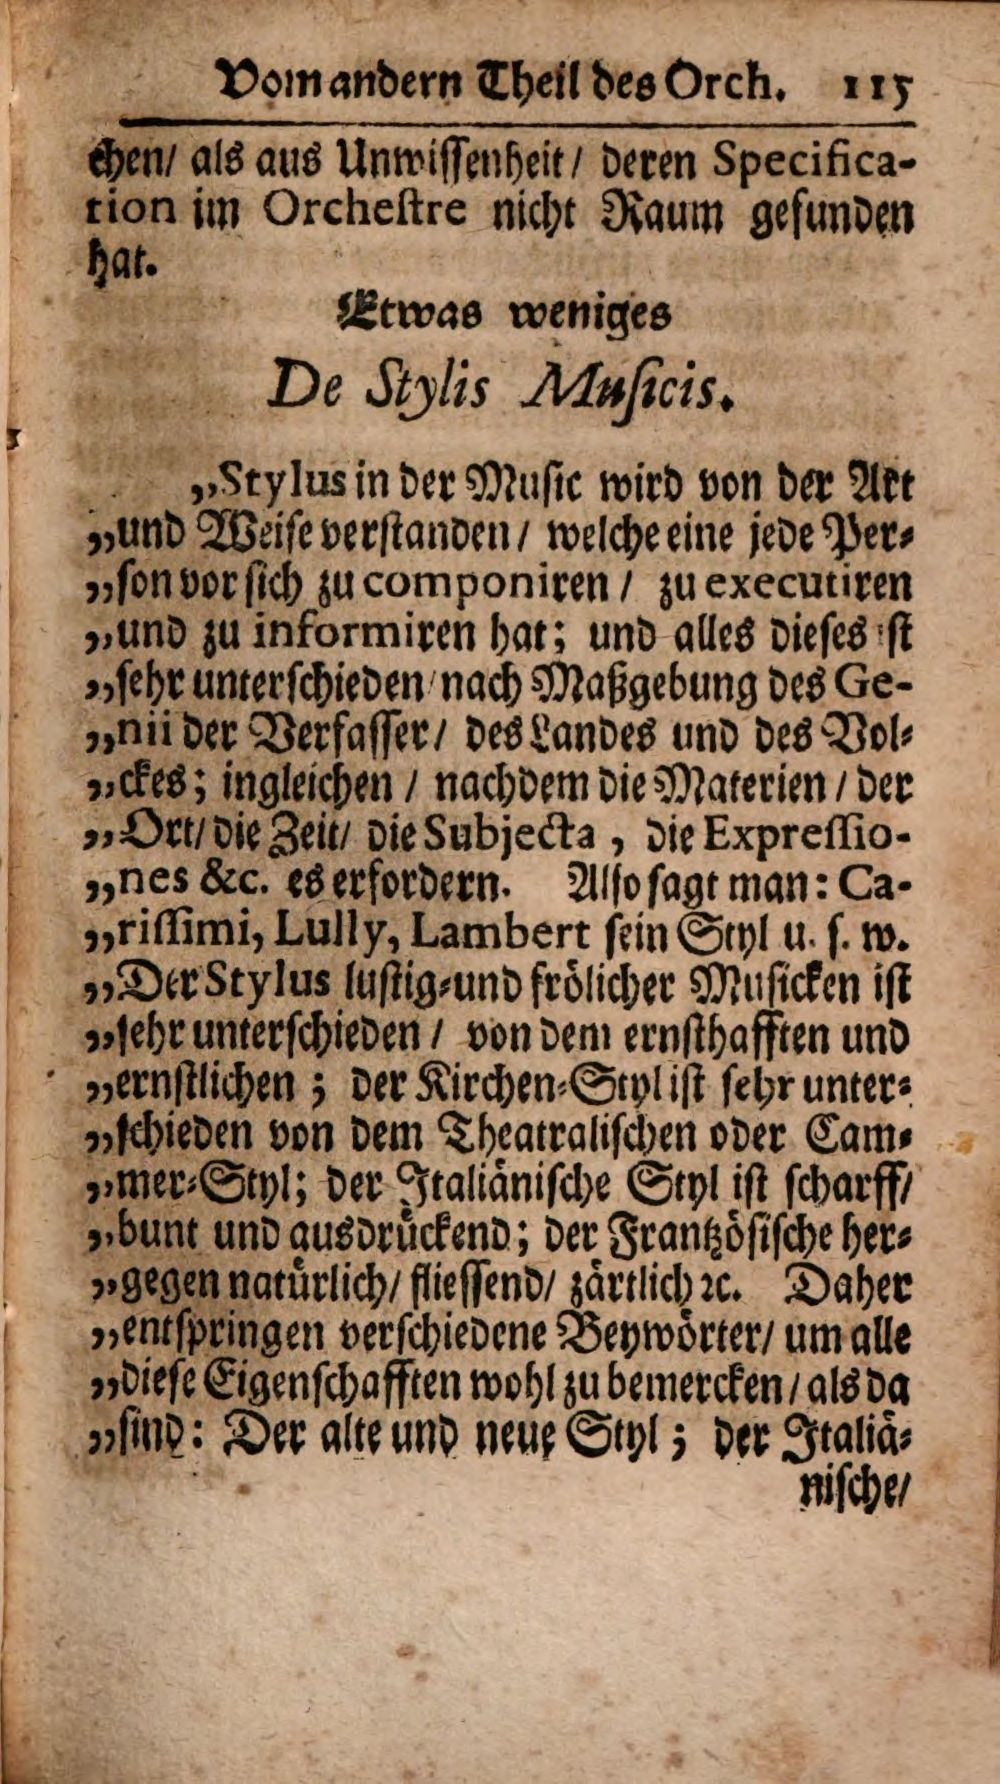 Vom andern Theil des Orch. 115
chen/ als aus Unwissenheit/ deren Specifica-
tion im Orchestre nicht Raum gefunden
hat.
Etwas weniges
De Stylis Musicis.
„Stylus in der Music wird von der Art
„und Weise verstanden/ welche eine jede Per-
„son vor sich zu componiren / zu executiren
„und zu informiren hat; und alles dieses ist
„sehr unterschieden/ nach Maßgebung des Ge-
„nii der Verfasser/ des Landes und des Vol-
„ckes; ingleichen / nachdem die Materien / der
„Ort/ die Zeit/ die Subjecta, die Expressio-
„nes &c. es erfordern. Also sagt man: Ca-
„rissimi, Lully, Lambert sein Styl u. s. w.
„Der Stylus lustig-und frölicher Musicken ist
„sehr unterschieden / von dem ernsthafften und
„ernstlichen ; der Kirchen-Styl ist sehr unter-
„schieden von dem Theatralischen oder Cam-
„mer-Styl; der Italiänische Styl ist scharff/
„bunt und ausdrückend; der Frantzösische her-
„gegen natürlich/ fliessend/ zärtlich ꝛc. Daher
„entspringen verschiedene Beywörter/ um alle
„diese Eigenschafften wohl zu bemercken / als da
„sind: Der alte und neue Styl ; der Italiä-
nische/